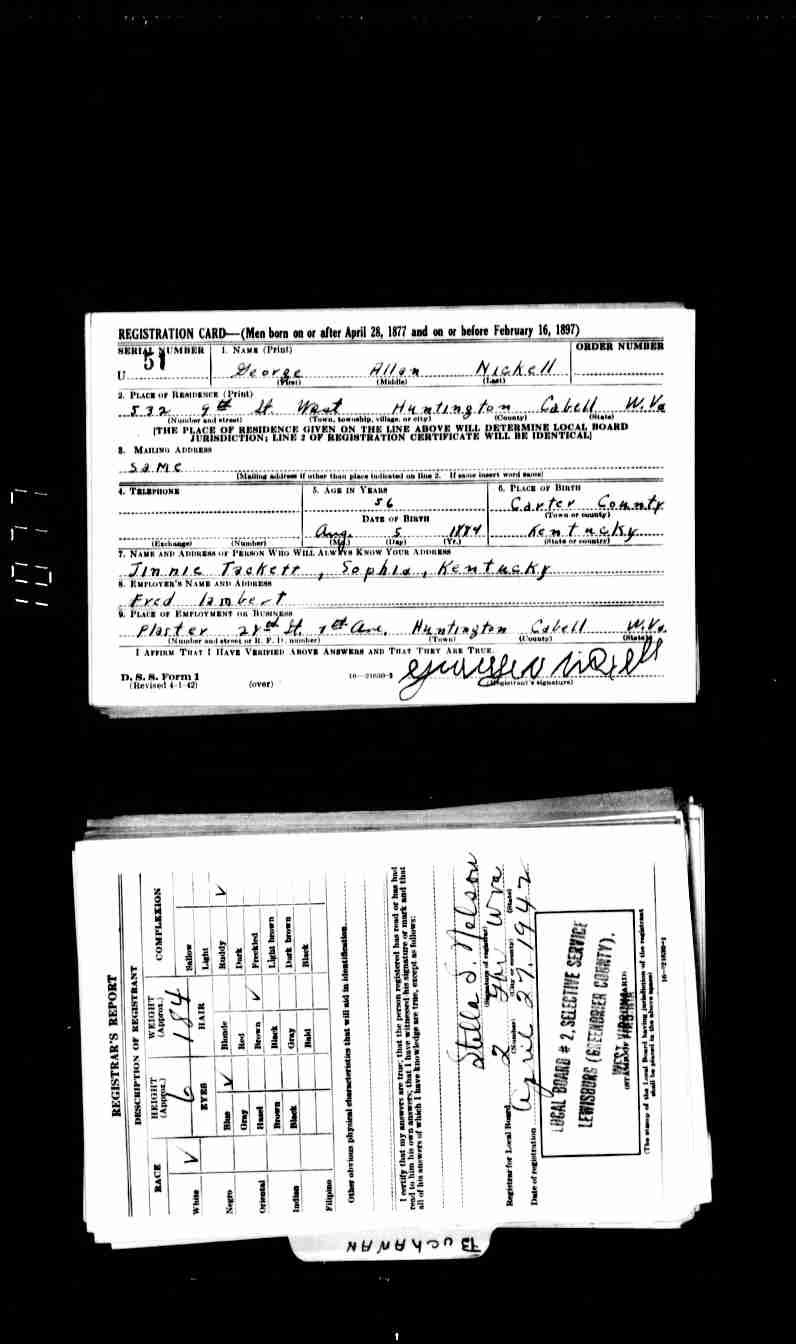 REGISTRATION CARD—(Men born on or after April 28, 1877 and on or before February 16, 1897)
SERIAL NUMBER 1. NAME (Print) ORDER NUMBER
U 51 George Allan Nickell
(First) (Middle) (Last)
2. PLACE OF RESIDENCE (Print)
532 9th St. West Huntington Cabell W.Va
(Number and street) (Town, township, village, or city) (County) (State)
[THE PLACE OF RESIDENCE GIVEN ON THE LINE ABOVE WILL DETERMINE LOCAL BOARD
JURISDICTION; LINE 2 OF REGISTRATION CERTIFICATE WILL BE IDENTICAL]
3. MAILING ADDRESS
Same
(Mailing address if other than place indicated on line 2. If same insert word same)
4. TELEPHONE 5. AGE IN YEARS 6. PLACE OF BIRTH
56 Carter County
DATE OF BIRTH (Town or county)
Aug. 5 1884 Kentucky
(Exchange) (Number) (Mo.) (Day) (Yr.) (State or country)
7. NAME AND ADDRESS OF PERSON WHO WILL ALWAYS KNOW YOUR ADDRESS
Jinnie Tackett, Sophia, Kentucky
8. EMPLOYER'S NAME AND ADDRESS
Fred lambert
9. PLACE OF EMPLOYMENT OR BUSINESS
Plaster St. 7th Ave. Huntington Cabell W.Va.
(Number and street or R. F. D. number) (Town) (County) (State)
I AFFIRM THAT I HAVE VERIFIED ABOVE ANSWERS AND THAT THEY ARE TRUE.
D. S. S. Form 1
(Revised 4-1-42) (over) 16—21630-2 (Registrant's signature)
REGISTRAR'S REPORT
DESCRIPTION OF REGISTRANT
RACE HEIGHT (Approx.) WEIGHT (Approx.) COMPLEXION
6 184
White EYES HAIR Sallow
Light
Negro Blue Blonde Ruddy
Gray Red Dark
Oriental Hazel Brown Freckled
Brown Black Light brown
Indian Black Gray Dark brown
Bald Black
Filipino
Other obvious physical characteristics that will aid in identification
I certify that my answers are true; that the person registered has read or has had
read to him his own answers; that I have witnessed his signature or mark and that
all of his answers of which I have knowledge are true, except as follows:
Stella S. Nelson
(Signature of registrar)
Registrar for Local Board 2
(Number) (City or county) (State)
Date of registration April 27, 1942
LOCAL BOARD # 2, SELECTIVE SERVICE
LEWISBURG (GREENBRIER COUNTY),
WEST VIRGINIA
(STAMP OF LOCAL BOARD)
(The stamp of the Local Board having jurisdiction of the registrant
shall be placed in the above space)
16—21630-1
BUCHANAN